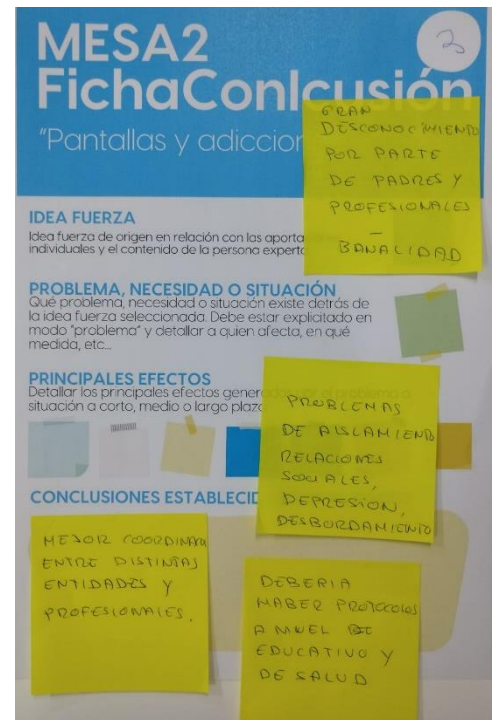 MESA2
3
FichaConlcusión
"Pantallas y adiccion
GRAN
DESCONOCIMIENTO
POR PARTE
DE PADRES Y
PROFESIONALES
-
BANALIDAD
IDEA FUERZA
Idea fuerza de origen en relación con las aporta
individuales y el contenido de la persona experta
PROBLEMA, NECESIDAD O SITUACIÓN
Qué problema, necesidad o situación existe detrás de
la idea fuerza seleccionada. Debe estar explicitado en
modo "problema" y detallar a quien afecta, en qué
medida, etc...
PRINCIPALES EFECTOS
Detallar los principales efectos gener
situación a corto, medio o largo plazo
PROBLEMAS
DE AISLAMIENTO
RELACIONES
SOCIALES,
DEPRESIÓN,
DESBORDAMIENTO
CONCLUSIONES ESTABLECID
MEJOR
ENTRE DISTINTAS
ENTIDADES Y
PROFESIONALES.
DEBERIA
HABER PROTOCOLOS
A NIVEL
EDUCATIVO Y
DE SALUD